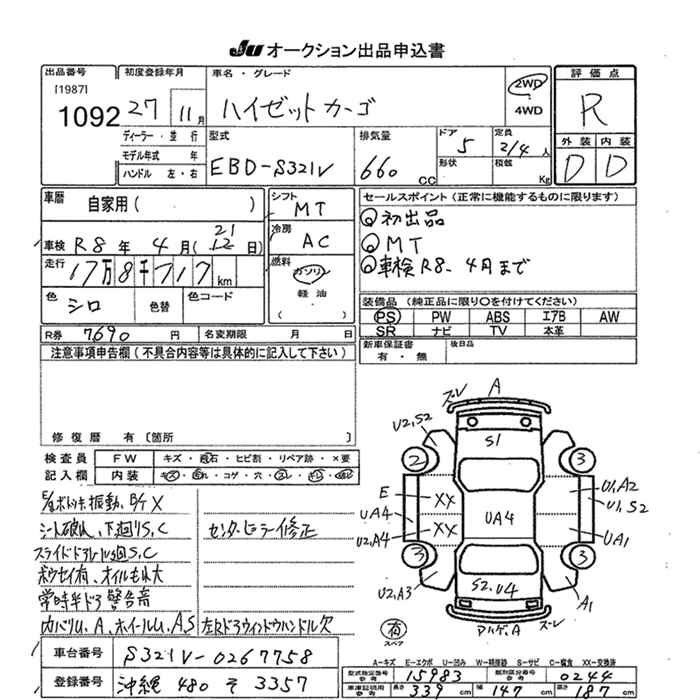 JU オークション出品申込書
出品番号
[1987]
1092
初度登録年月
27 11月
車名・グレード
ハイゼットカーゴ
2WD
4WD
評価点
R
外装 内装
D D
ディーラー・並行
モデル年式 年
ハンドル 左・右
型式
EBD-S321V
排気量
660 cc
ドア
5
形状
定員
2/4 人
積載
Kg
車歴
自家用( )
車検 R8年 4月(12日)
21
走行
17万8千717km
色
シロ
色替
色コード
シフト
MT
冷房
AC
燃料
ガソリン
軽油
( )
セールスポイント(正常に機能するものに限ります)
初出品
MT
車検R8-4月まで
装備品(純正品に限り○を付けてください)
PS PW ABS エアB AW
SR ナビ TV 本革
R券 7690 円
名変期限 月 日
新車保証書
有・無
後日品
注意事項申告欄(不具合内容等は具体的に記入して下さい)
修復歴 有 〔箇所 〕
検査員
記入欄
FW
キズ・飛石・ヒビ割・リペア跡・×要
内装
キズ・コゲ・穴
シート破れ、下廻りS,C
センターピラー修正
スライドドアレール廻S,C
ボウセイ有、オイルもれ大
常時半ドア警告音
左Rドアウィンドウハンドル欠
ズレ A
U2,S2
S1
2
3
E
XX
U1,A2
U1,S2
UA4
XX
UA4
U2,A4
UA1
3
3
U2,A3
S2,U4
A1
ズレ
有
スペア
A=キズ E=エクボ U=凹み W=補修跡 S=サビ C=腐食 XX=交換済
車台番号
S321V-0267758
登録番号
沖縄 480 そ 3357
型式指定番号
15983
類別区分番号
0244
車庫証明用
参考
長さ 339 cm
幅 147 cm
高さ 187 cm